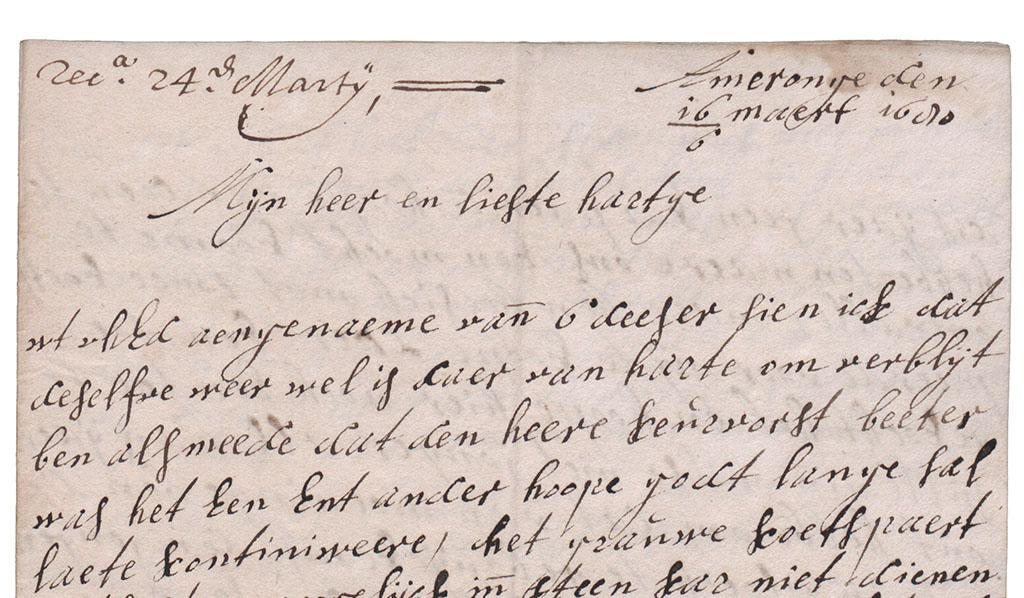 Reca. 24d. Martÿ,
Ameronge den
16/6 maert 1680
Mijn heer en liefste hartge
wt uhEd aengenaeme van 6 deeser sien ick dat
deselfve weer wel is daer van harte om verblijt
ben alsmeede dat den heere keurvorst beeter
was het Een Ent ander hoope godt lange sal
laete kontiniweere, het grauwe koetspaert
in steen kar niet dienen